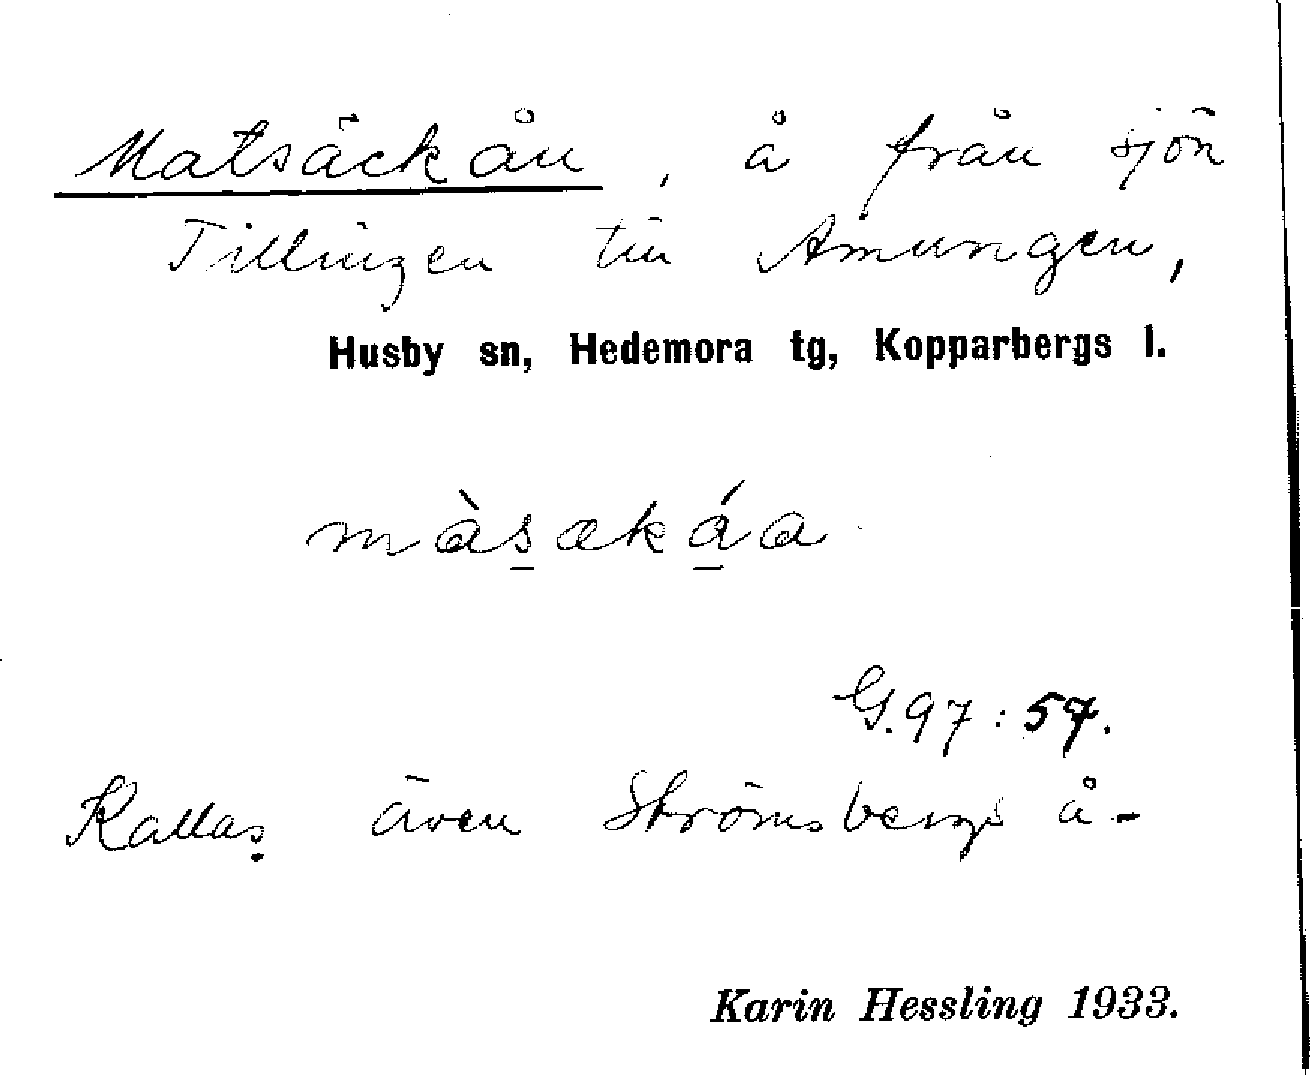 Matsäckån, å från sjön
Tillingen till Amungen,
Husby sn, Hedemora tg, Kopparbergs l.
màs̲æká̲a
G. 97 : 57.
Kallas även Strömsbergs å-
Karin Hessling 1933.